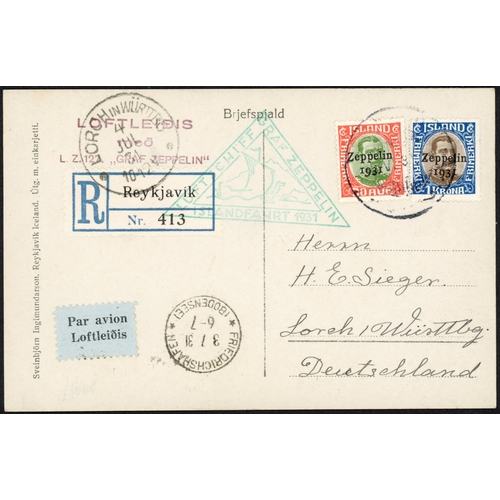 Brjefspjald
LORCH IN WÜRTT
LOFTLEIÐIS
með
L. Z. 127 „GRAF ZEPPELIN“
R
Reykjavik
Nr. 413
LUFTSCHIFF GRAF ZEPPELIN
ISLANDFAHRT 1931
ISLAND
Zeppelin
1931
ISLAND
Zeppelin
1931
1 KRÓNA
FRIMERKI
Herrn
H. E. Sieger.
Lorch, Württbg.
Deutschland
Par avion
Loftleiðis
FRIEDRICHSHAFEN
(BODENSEE)
3 7 31
6-7
Sveinbjörn Ingimundarson. Reykjavik Iceland. Útg. m. einkarjetti.